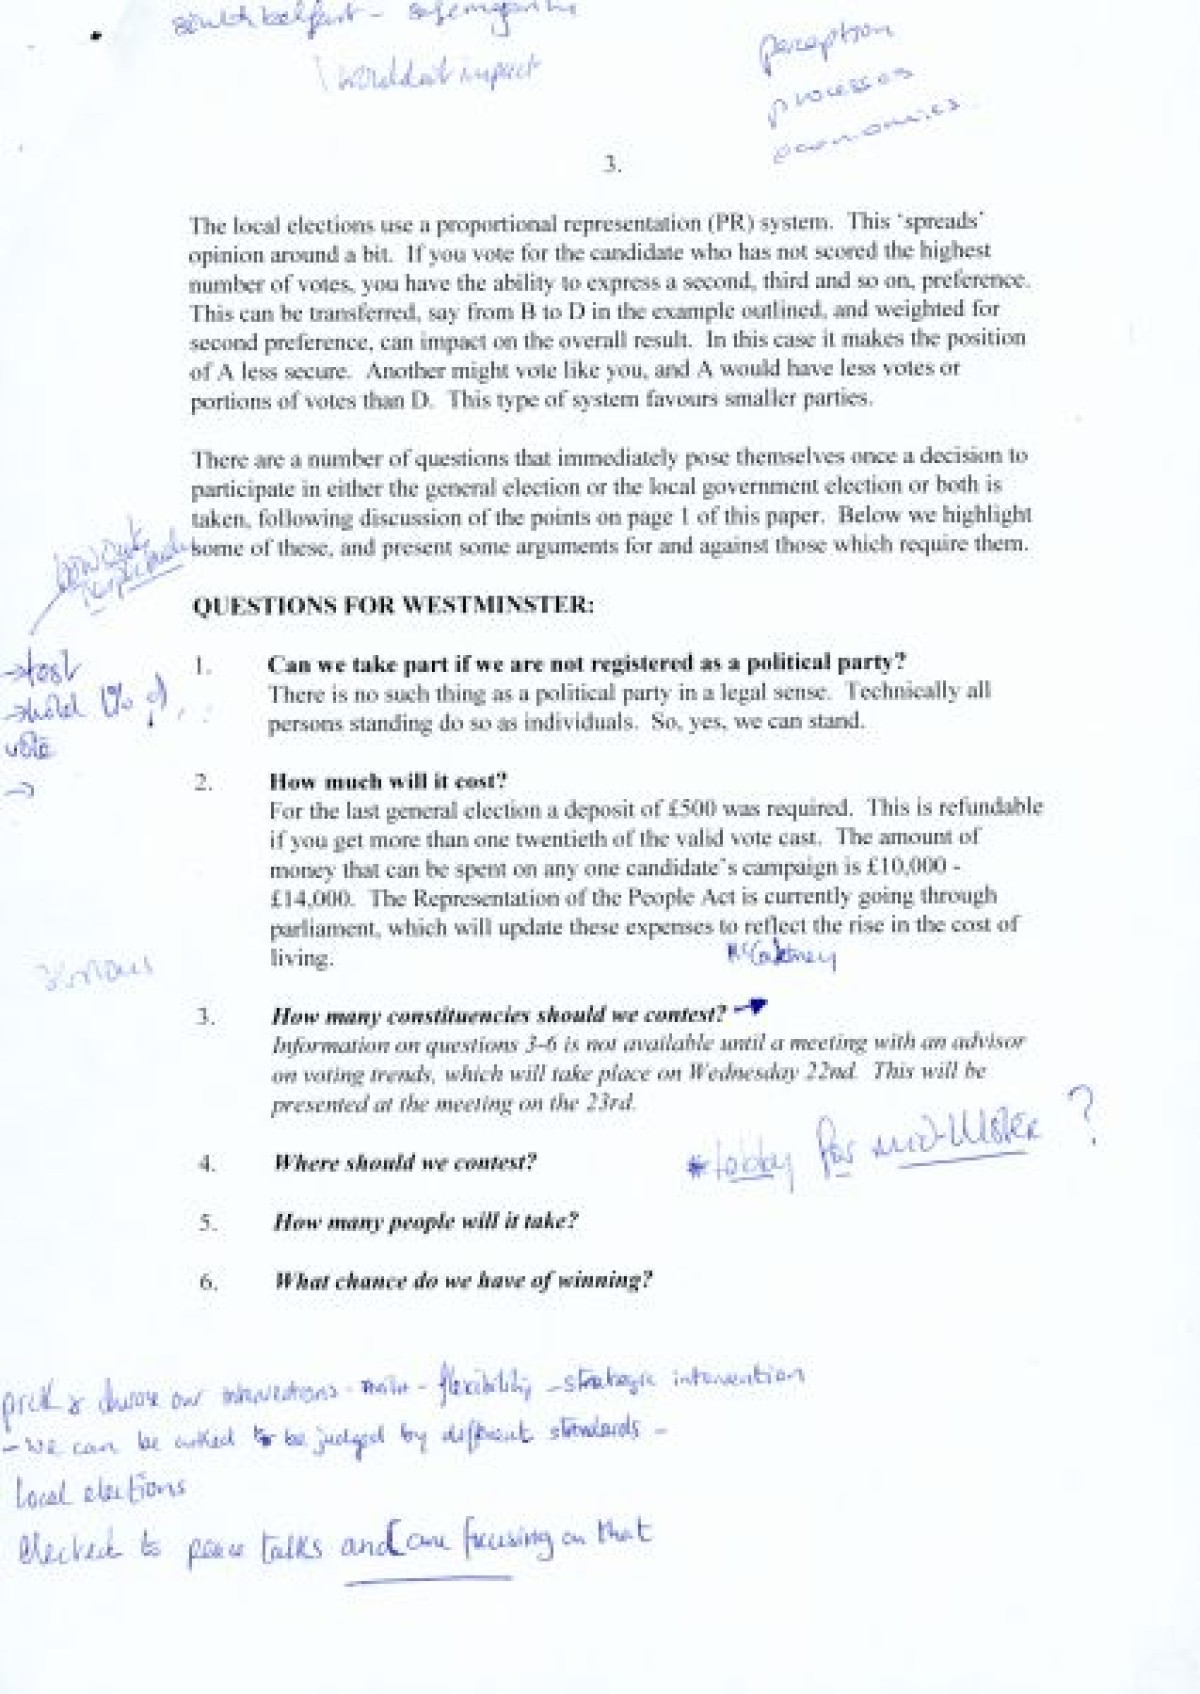 south belfast - safe majority
wouldn't impact
perception
processes
economies
3.
The local elections use a proportional representation (PR) system. This ‘spreads’
opinion around a bit. If you vote for the candidate who has not scored the highest
number of votes, you have the ability to express a second, third and so on, preference.
This can be transferred, say from B to D in the example outlined, and weighted for
second preference, can impact on the overall result. In this case it makes the position
of A less secure. Another might vote like you, and A would have less votes or
portions of votes than D. This type of system favours smaller parties.
There are a number of questions that immediately pose themselves once a decision to
participate in either the general election or the local government election or both is
taken, following discussion of the points on page 1 of this paper. Below we highlight
some of these, and present some arguments for and against those which require them.
QUESTIONS FOR WESTMINSTER:
→ cost
→ hold 1% of
vote
→
1. Can we take part if we are not registered as a political party?
There is no such thing as a political party in a legal sense. Technically all
persons standing do so as individuals. So, yes, we can stand.
2. How much will it cost?
For the last general election a deposit of £500 was required. This is refundable
if you get more than one twentieth of the valid vote cast. The amount of
money that can be spent on any one candidate’s campaign is £10,000 -
£14,000. The Representation of the People Act is currently going through
parliament, which will update these expenses to reflect the rise in the cost of
living.
McCartney
3. How many constituencies should we contest? →
Information on questions 3-6 is not available until a meeting with an advisor
on voting trends, which will take place on Wednesday 22nd. This will be
presented at the meeting on the 23rd.
* lobby for mid-Ulster ?
4. Where should we contest?
5. How many people will it take?
6. What chance do we have of winning?
pick & choose our interventions - - flexibility - strategic intervention
- we can be asked to be judged by different standards -
local elections
elected to peace talks and are focusing on that